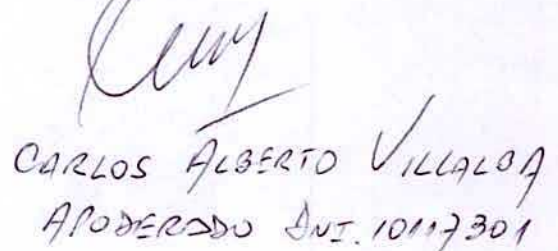 CARLOS ALBERTO VILLALBA
APODERADO DNI. 10117301